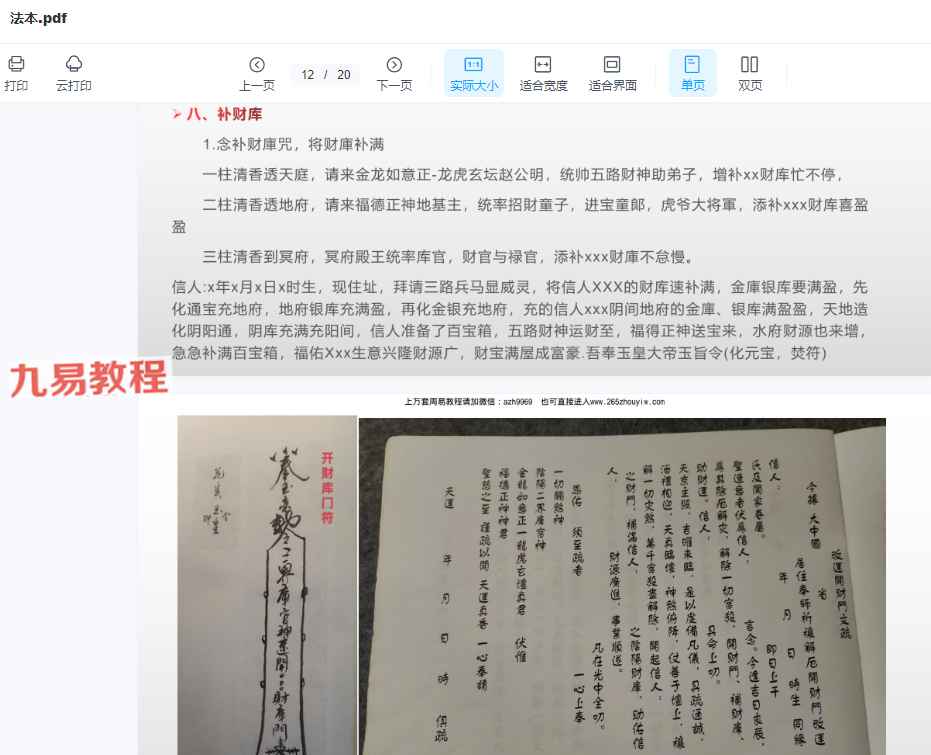 法本.pdf
打印
云打印
上一页
12 / 20
下一页
1:1
实际大小
适合宽度
适合界面
单页
双页
八、补财库
1.念补财庫咒，将财庫补满
一柱清香透天庭，请来金龙如意正-龙虎玄坛赵公明，统帅五路财神助弟子，增补xx财库忙不停，
二柱清香透地府，请来福德正神地基主，统率招财童子，进宝童郎，虎爷大将軍，添补xxx财库喜盈
盈
三柱清香到冥府，冥府殿王统率库官，财官与禄官，添补xxx财庫不怠慢。
信人:x年x月x日x时生，现住址，拜请三路兵马显威灵，将信人XXX的财库速补满，金庫银库要满盈，先
化通宝充地府，地府银库充满盈，再化金银充地府，充的信人xxx阴间地府的金庫、银库满盈盈，天地造
化阴阳通，阴库充满充阳间，信人准备了百宝箱，五路财神运财至，福得正神送宝来，水府财源也来增，
急急补满百宝箱，福佑Xxx生意兴隆财源广，财宝满屋成富豪.吾奉玉皇大帝玉旨令(化元宝，焚符)
九易教程
上万套周易教程请加微信：azh9969 也可直接进入www.265zhouyiw.com
开财库门符
改運開財門文疏
今據 大中國 省
居住奉師祈禳解厄開財門改運
年 月 日 時生 同緣
信人，
即日上干
言念。今逢吉日良辰，
助財運。信人，
具命上叩。
解一切灾煞，
之財門，補滿信人，
之陰陽財庫，助佑信
人，
財源廣進，事業順遂。
凡在光中全叩。
恩佑 须至疏者
一心上奉
一切賜煞神
陰陽二界庫官神
金龍如意正一龍虎玄壇真君
福德正神神君 伏惟
聖慈之至 謹疏以聞 天運真香 一心奉請
天運 年 月 日 時 俱疏